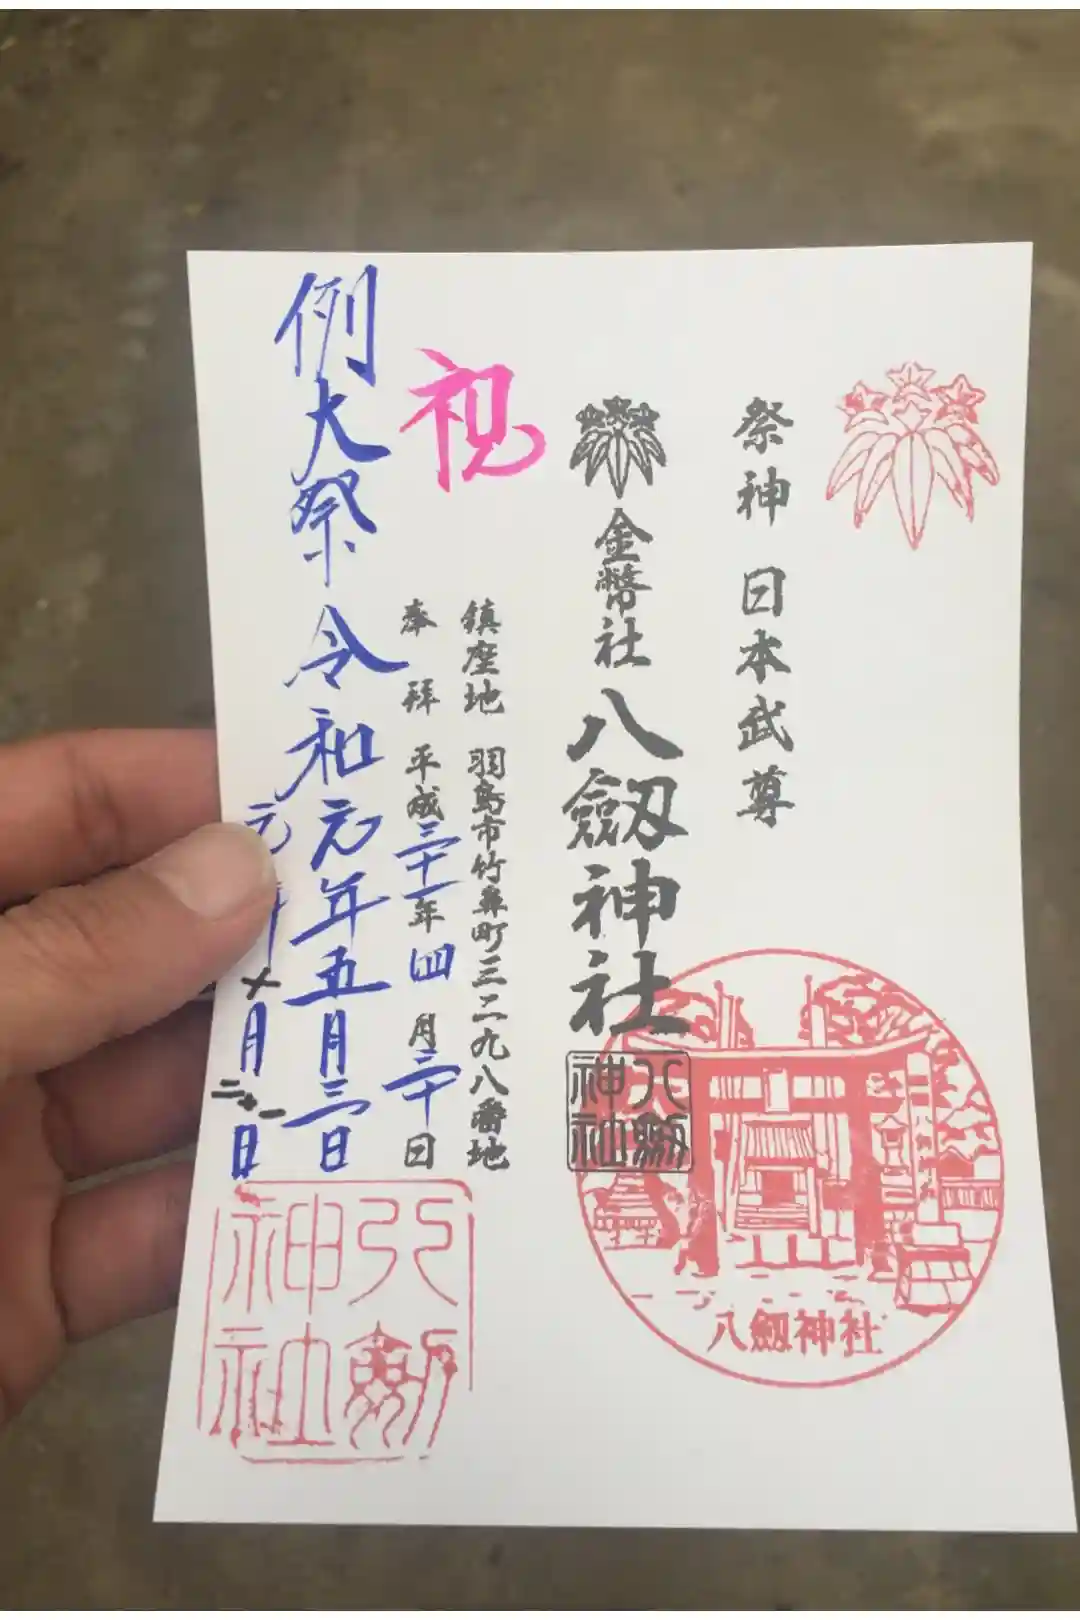 祭神 日本武尊
金幣社 八劔神社
八劔神社
八劔神社
鎮座地 羽島市竹鼻町三二九八番地
祝
奉拝 平成三十一年四月三十日
例大祭 令和元年五月三日
元年十月二十一日
八劔神社